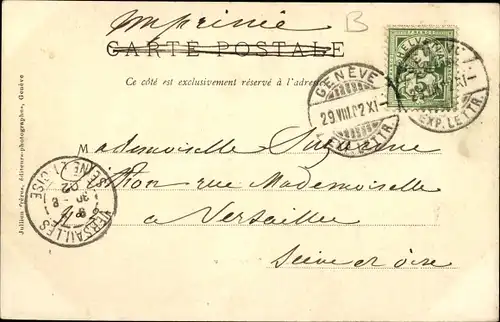 Imprimée
B
CARTE POSTALE
Ce côté est exclusivement réservé à l'adresse
HELVETIA
GENÈVE
29.VIII.02.XI-
EXP. LETTR.
GENÈVE
EXP. LETTR.
Mademoiselle Suzanne
rue Mademoiselle
a Versailles
Seine et Oise
VERSAILLES
SEINE ET OISE
Jullien frères, éditeurs-photographes, Genève